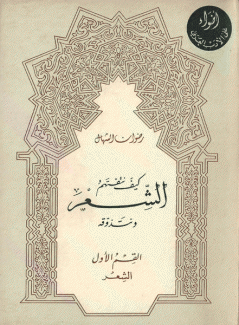 أضواء
رضوان الشهال
كيف نتفهم
الشعر
ونتذوقه
القسم الأول
الشعر